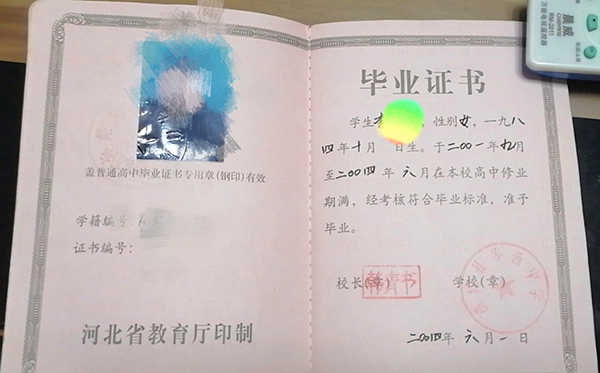 盖普通高中毕业证书专用章(钢印)有效
学籍编号:
证书编号:
河北省教育厅印制
毕业证书
学生 ，性别女，一九八
四年十月 日生。于二〇〇一年九月
至二〇〇四年六月在本校高中修业
期满，经考核符合毕业标准，准予
毕业。
校长(章) 学校(章)
二〇〇四年六月一日
晨威